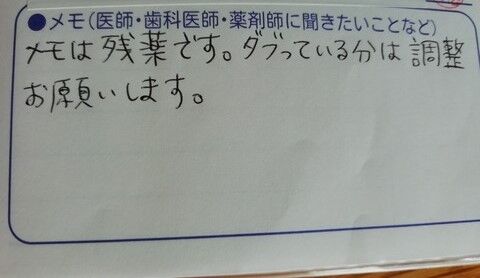 ●メモ(医師・歯科医師・薬剤師に聞きたいことなど)
メモは残薬です。ダブっている分は調整
お願いします。